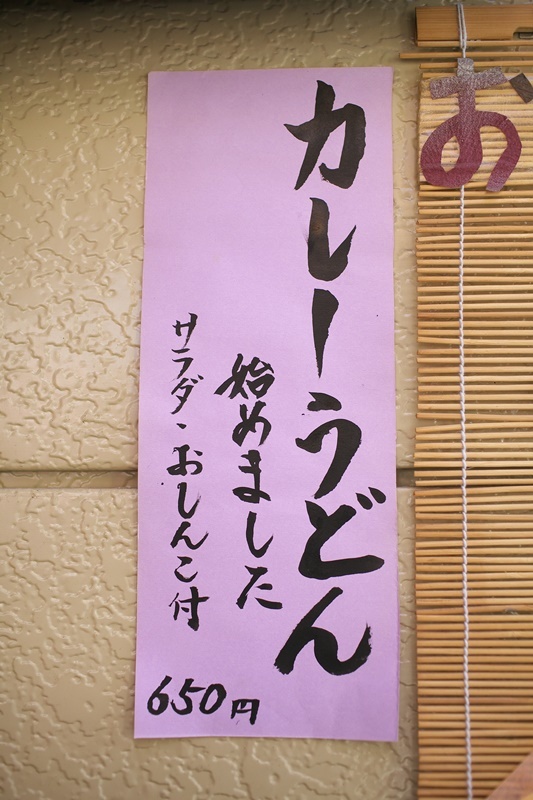 お
カレーうどん
始めました
サラダ・おしんこ付
650円